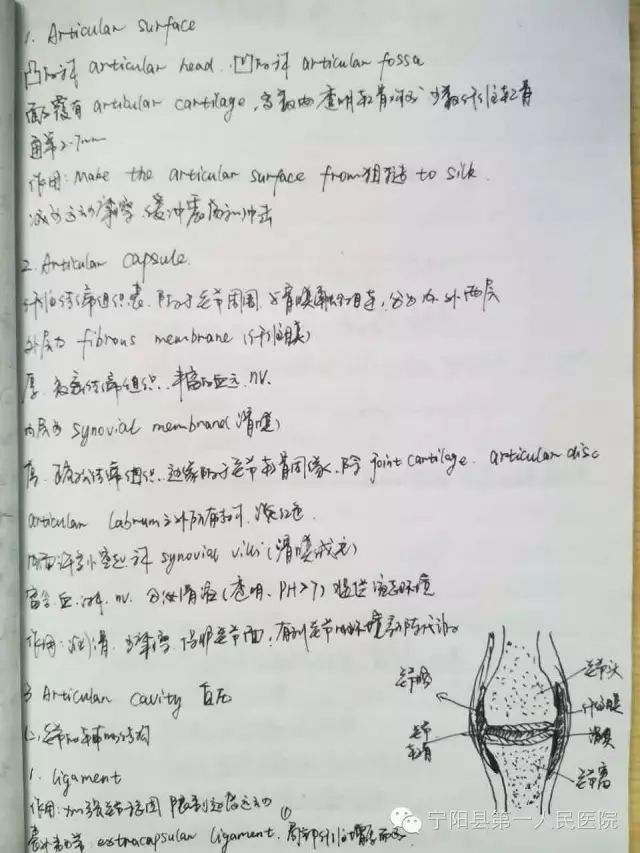 1. Articular surface
凸的称 articular head. 凹的称 articular fossa
面覆有 articular cartilage, 多数由透明软骨 少数纤维软骨
2-7mm
作用: Make the articular surface from 粗糙 to silk.
减少运动摩擦, 缓冲震荡和冲击
2. Articular capsule.
纤维结缔组织囊, 附于关节周围, 与骨膜 相连, 分为内外两层
外层为 fibrous membrane (纤维膜)
厚. 致密结缔组织. 丰富的血运. nv.
内层为 synovial membrane (滑膜)
疏松结缔组织, 边缘附于关节软骨周缘, 除 joint cartilage. articular disc
articular labrum 之外 淡红色.
内面许多小突起, 称 synovial villi (滑膜绒毛)
富含. 血. nv. 分泌滑液 (透明. PH>7) 提供液态环境
作用: 润滑. 保护关节面,
3 Articular cavity 负压
关节的辅助结构
1. ligament
作用: 加强关节稳固 限制过度运动
囊外韧带: extracapsular ligament. ①
关节腔
关节软骨
关节头
纤维膜
滑膜
关节窝
宁阳县第一人民医院